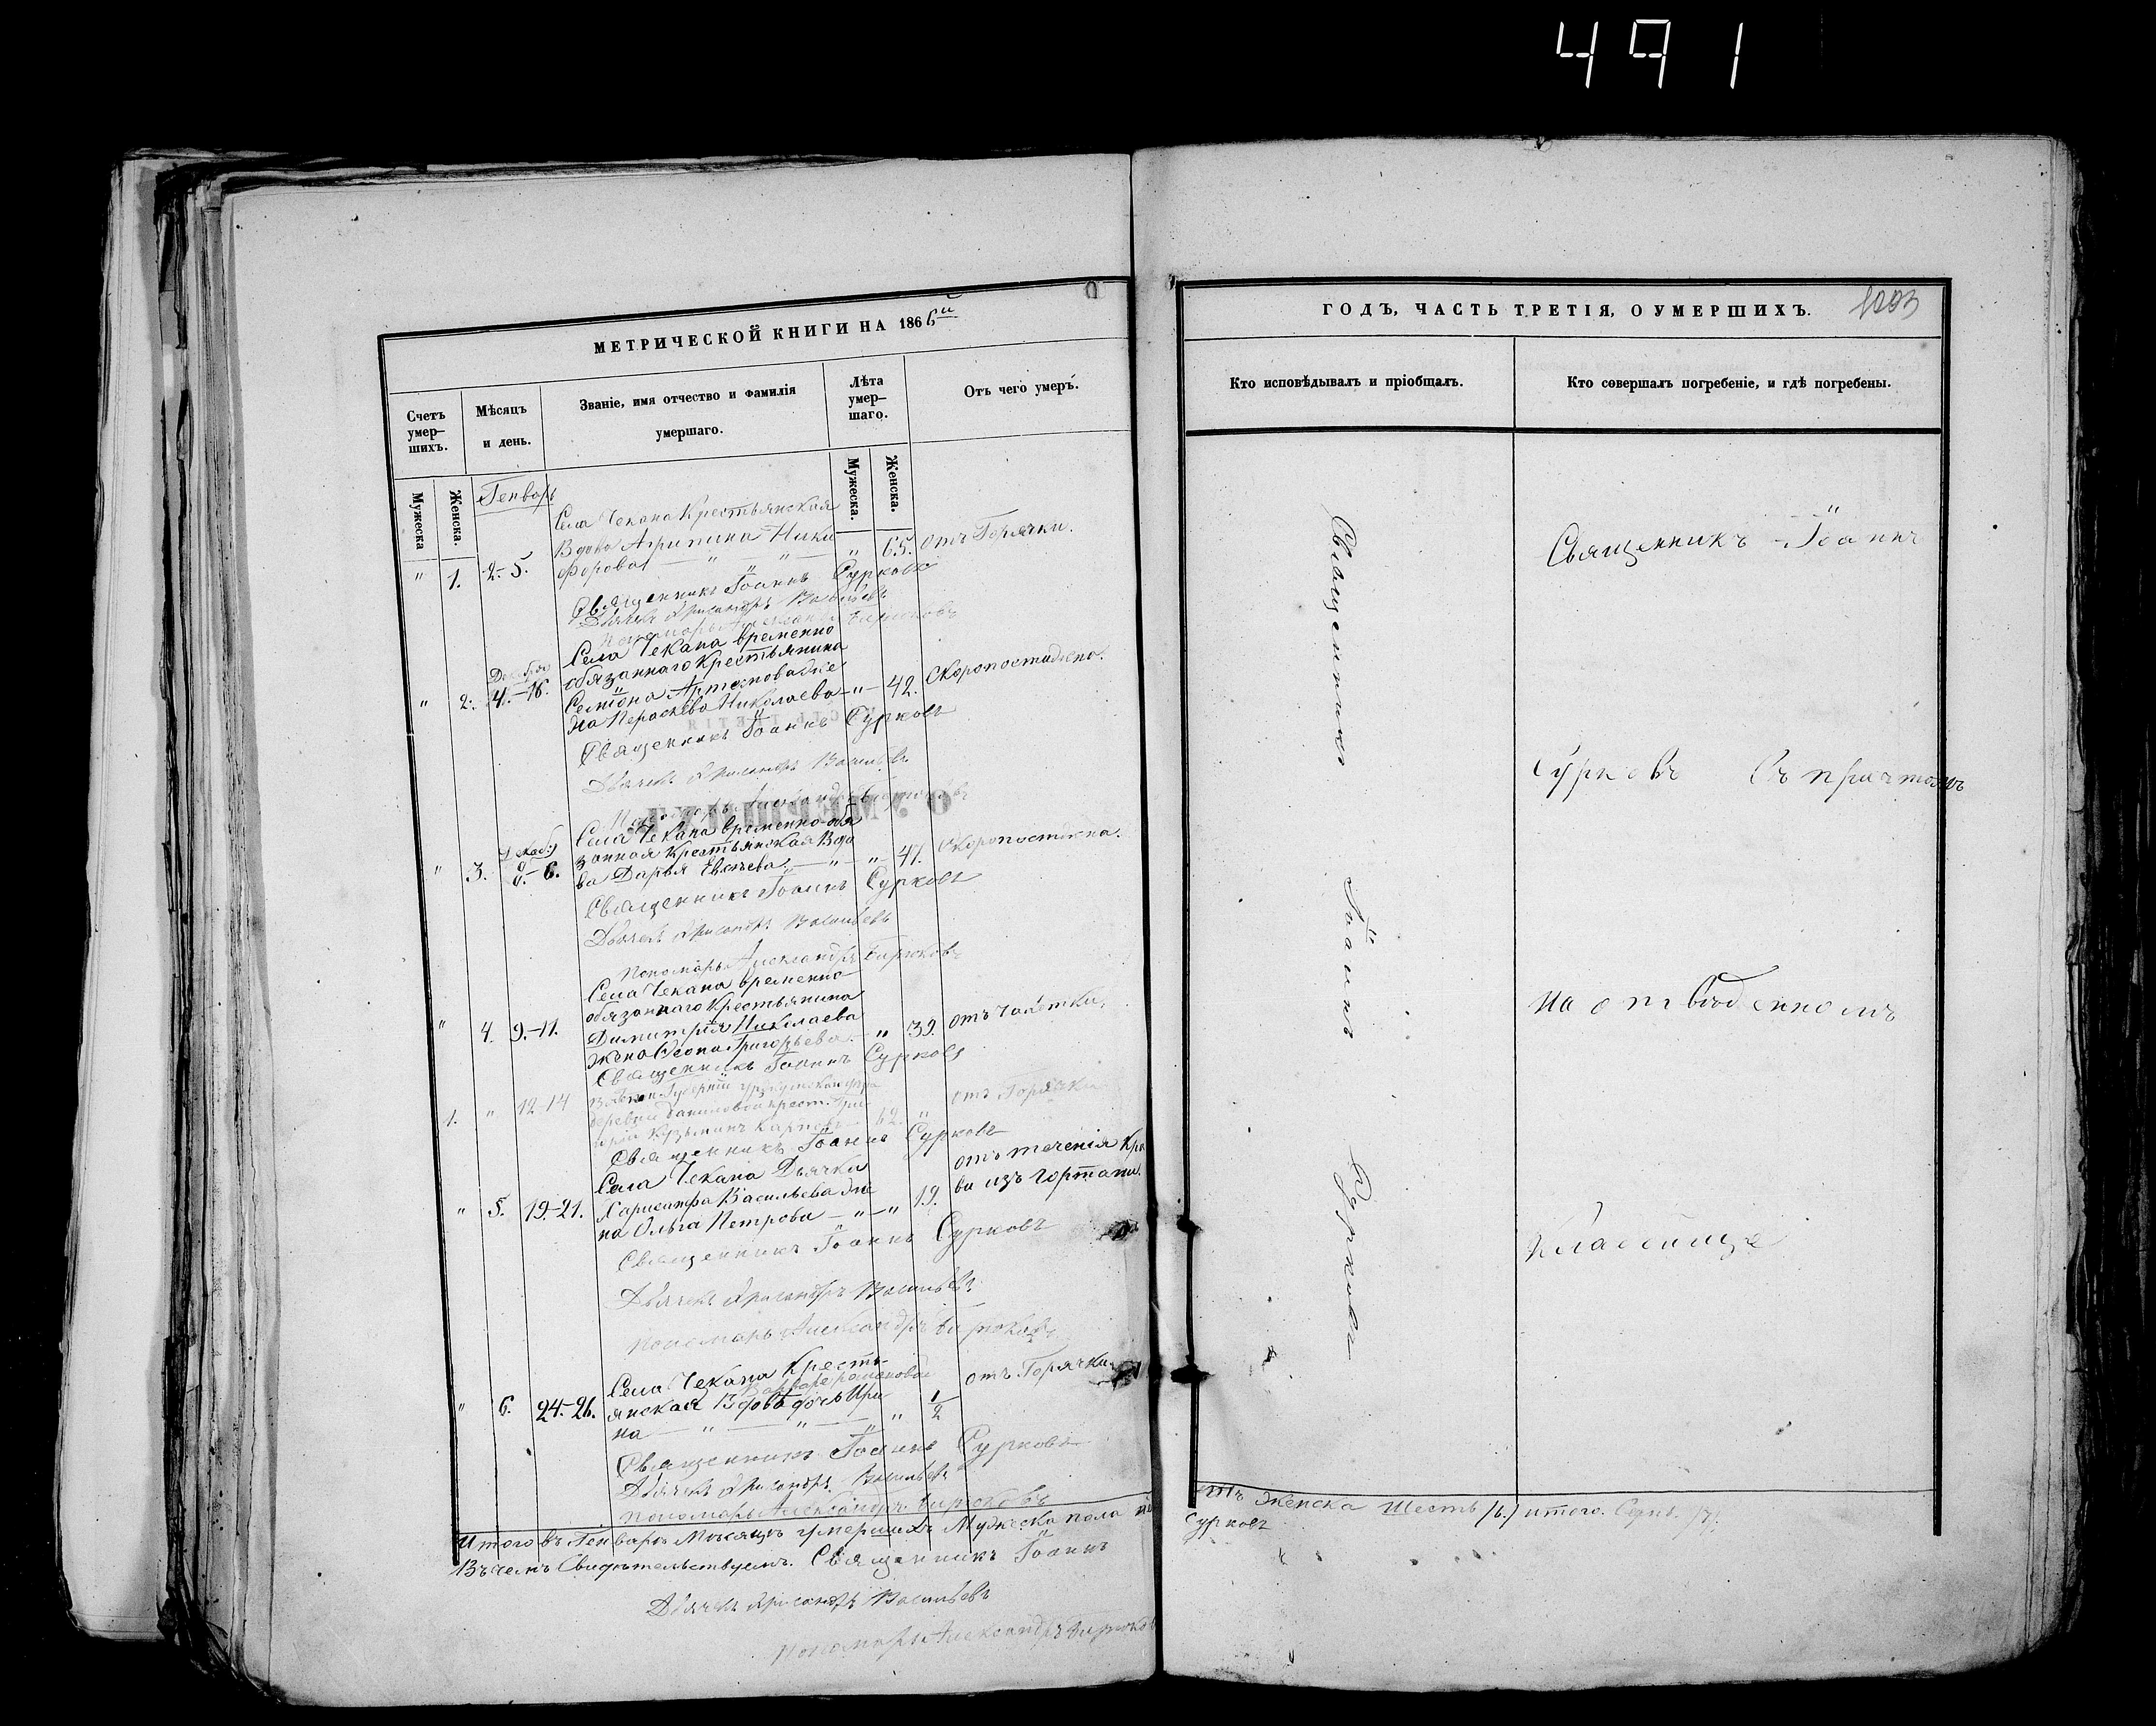 491
МЕТРИЧЕСКОЙ КНИГИ НА 186
Счетъ умер–шихъ.
Мѣсяцъ и день.
Званіе, имя отчество и фамилія умершаго.
Лѣта умер–шаго.
Отъ чего умеръ.
Мужеска
Женска.
Мужеска.
Женска.
Генварь
Села Чекана Крестьянская
Вдова Агрипина Ники
" 1. 2.-5. форова — " — " — " 65. отъ Горячки.
Священникъ Іоаннъ Сурковъ
Дьячекъ Хрисанфъ Васильевъ
Пономарь Александръ Бирюковъ
Села Чекана временно
обязаннаго Крестьянина
Декабря
" 2. 4.-16. Семіона Артемова же
на Параскева Николаева — " — 42. Скоропостижно.
Священникъ Іоаннъ Сурковъ
Дьячекъ Хрисанфъ Васильевъ
Пономарь Александръ Бирюковъ
Села Чекана временно-обя
занная Крестьянская Вдо
" 3. 6. ва Дарья — " — " — 47. Скоропостижно.
Священникъ Іоаннъ Сурковъ
Дьячекъ Хрисанфъ Васильевъ
Пономарь Александръ Бирюковъ
Села Чекана временно
обязаннаго Крестьянина
" 4. 9.-11. Димитрія Николаева
жена Григорьева. — " 39. отъ Чахотки.
Священникъ Іоаннъ Сурковъ
губерніи Уржумскаго
1. " 12-14 деревни крест.
Кузьминъ Карповъ 62. " отъ Горячки
Священникъ Іоаннъ Сурковъ
Села Чекана Дьячка
отъ теченія Кро
" 5. 19.-21. Хрисанфа Васильева же
на Ольга Петрова — " — " 19. ви изъ Гортани.
Священникъ Іоаннъ Сурковъ
Дьячекъ Хрисанфъ Васильевъ
Пономарь Александръ Бирюковъ
Села Чекана Кресть
отъ Горячки.
" 6. 24.-26. янская Вдова дочь Ири
на — " — " — " 1/2
Священникъ Іоаннъ Сурковъ
Дьячекъ Хрисанфъ Васильевъ
Пономарь Александръ Бирюковъ
Итого въ Генварѣ Мѣсяцѣ умершихъ Мужеска пола
Въ чемъ Свидѣтельствуемъ. Священникъ Іоаннъ
Дьячекъ Хрисанфъ Васильевъ
Пономарь Александръ Бирюковъ
ГОДЪ, ЧАСТЬ ТРЕТІЯ, О УМЕРШИХЪ.
Кто исповѣдывалъ и пріобщалъ.
Кто совершалъ погребеніе, и гдѣ погребены.
Священникъ Іоаннъ Сурковъ
Священникъ Іоаннъ
Сурковъ Съ причтомъ
На отведенномъ
Кладбище
Женска Шесть /6./ итого. Семь. /7/.
Сурковъ